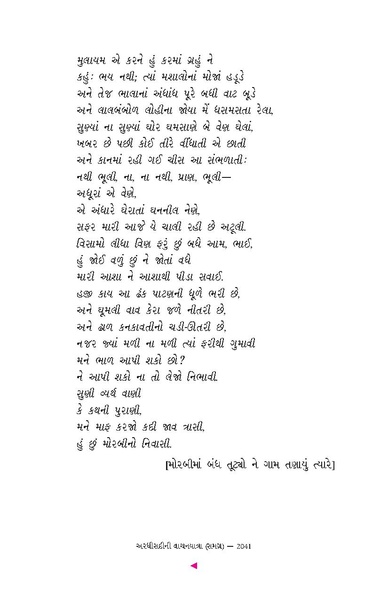 મુલાયમ એ કરને હું કરમાં ગ્રહું ને
કહુંઃ ભય નથી; ત્યાં મશાલોનાં મોજાં હડૂડે
અને તેજ ભાલાનાં અંધાંધ પૂરે બધી વાટ બૂડે
અને લાલબંબોળ લોહીના જોયા મેં ધસમસતા રેલા,
સુણ્યાં ના સુણ્યાં ઘોર ઘમસાણે બે વેણ ઘેલાં,
ખબર છે પછી કોઈ તીરે વીંધાતી એ છાતી
અને કાનમાં રહી ગઈ ચીસ આ સંભળાતીઃ
નથી ભૂલી, ના, ના નથી, પ્રાણ, ભૂલી—
અધૂરાં એ વેણે,
એ અંધારે ઘેરાતાં ઘનનીલ નેણે,
સફર મારી આજે યે ચાલી રહી છે અટૂલી.
વિસામો લીધા વિણ ફરું છું બધે આમ, ભાઈ,
હું જોઈ વળું છું ને જોતાં વધે
મારી આશા ને આશાથી પીડા સવાઈ.
હજી કાય આ ઢંક પાટણની ધૂળે ભરી છે,
અને ઘૂમલી વાવ કેરા જળે નીતરી છે,
અને ઢાળ કનકાવતીનો ચડી-ઊતરી છે,
નજર જ્યાં મળી ના મળી ત્યાં ફરીથી ગુમાવી
મને ભાળ આપી શકો છો?
ને આપી શકો ના તો લેજો નિભાવી.
સુણી વ્યર્થ વાણી
કે કથની પુરાણી,
મને માફ કરજો કદી જાવ ત્રાસી,
હું છું મોરબીનો નિવાસી.
[મોરબીમાં બંધ તૂટ્યો ને ગામ તણાયું ત્યારે]
અરધીસદીની વાચનયાત્રા (સમગ્ર) — 2041